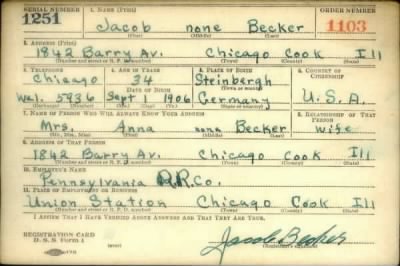 SERIAL NUMBER 1. NAME (Print) ORDER NUMBER
1251 Jacob none Becker 1103
(First) (Middle) (Last)
2. ADDRESS (Print)
1842 Barry Av. Chicago Cook Ill
(Number and street or R. F. D. number) (Town) (County) (State)
3. TELEPHONE 4. AGE IN YEARS 5. PLACE OF BIRTH 6. COUNTRY OF CITIZENSHIP
Chicago 34 Steinbergh
DATE OF BIRTH (Town or county)
Wel. 5936 Sept 1 1906 Germany U.S.A.
(Exchange) (Number) (Mo.) (Day) (Yr.) (State or country)
7. NAME OF PERSON WHO WILL ALWAYS KNOW YOUR ADDRESS 8. RELATIONSHIP OF THAT PERSON
Mrs. Anna none Becker wife
(Mr., Mrs., Miss) (First) (Middle) (Last)
9. ADDRESS OF THAT PERSON
1842 Barry Av. Chicago Cook Ill
(Number and street or R. F. D. number) (Town) (County) (State)
10. EMPLOYER'S NAME
Pennsylvania R.R.Co.
11. PLACE OF EMPLOYMENT OR BUSINESS
Union Station Chicago Cook Ill
(Number and street or R. F. D. number) (Town) (County) (State)
I AFFIRM THAT I HAVE VERIFIED ABOVE ANSWERS AND THAT THEY ARE TRUE.
REGISTRATION CARD
D. S. S. Form 1 Jacob Becker
(Registrant's signature)